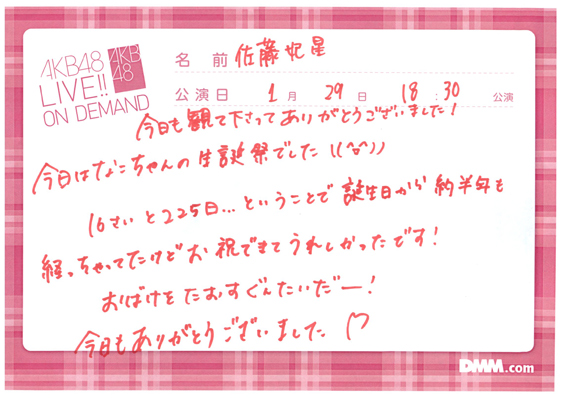 AKB48
LIVE!!
ON DEMAND
AKB
48
名前 佐藤妃星
公演日 1月 29日 18:30 公演
今日も観て下さってありがとうございました!
今日はなこちゃんの生誕祭でした!((^o^))
16さいと225日…ということで誕生日から約半年も
経っちゃってたけどお祝できてうれしかったです!
おばけをたおすぐんたいだー!
今日もありがとうございました ♡
DMM.com